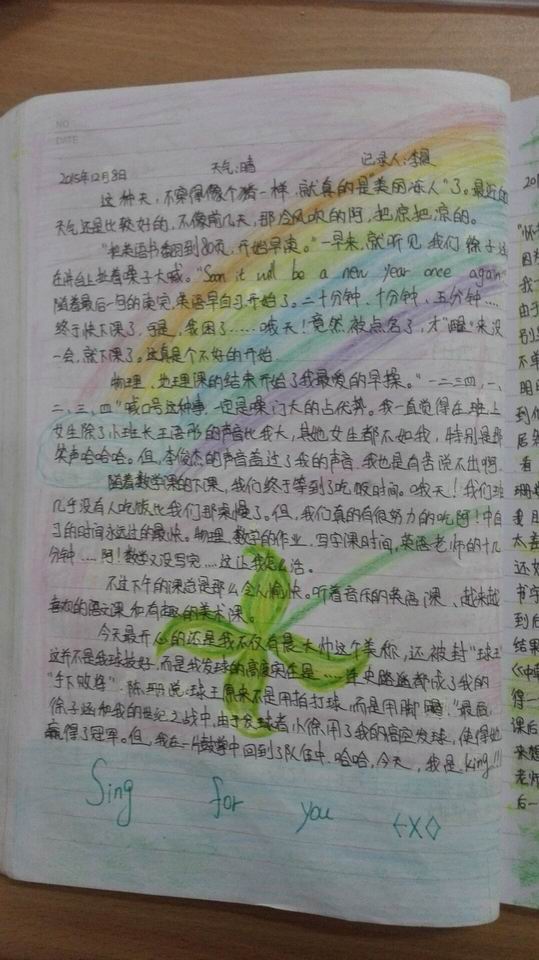 NO
DATE
2015年12月8日 天气:晴 记录人:李晨
这种天,不穿得像个 一样,就真的是"美丽冻人"了。最近的
天气还是比较好的,不像前几天,那冷风吹的阿,把凉把凉的。
"把英语书翻到80页,开始早读。"一早来,就听见我们徐子涵
在讲台上扯着嗓子大喊。"Soon it will be a new year once again"
随着最后一句的读完,英语早自习开始了。二十分钟、十分钟、五分钟……
终于快下课了,于是,我困了……哦天!竟然被点名了,才"醒"来没
一会,就下课了。这真是个不好的开始。
物理、地理课的结束开始了我最爱的早操。"一二三四,一、
二、三、四"喊口号这种事,一定是嗓门大的占优势。我一直觉得在班上
女生除了小班长王语彤的声音比我大,其她女生都不如我,特别是那
笑声哈哈哈。但,李俊杰的声音盖过了我的声音,我也是有苦说不出啊。
随着数学课的下课,我们终于等到了吃饭时间。哦天!我们班
几乎没有人吃饭比我们那桌慢了。但,我们真的有很努力的吃阿!中自
习的时间永远过的最快。物理、数学的作业,写字课时间,英语老师的十几
分钟……阿!数学又没写完……这让我怎么活。
不过下午的课总是那么令人愉快。听着音乐的英语课、越来越
喜欢的语文课和有趣的美术课。
今天最开心的还是我不仅有晨大帅这个美称,还被封"球王"
这并不是我球技好,而是我发球的高度实在是……连 都成了我的
"手下败将"。陈珊说:球王原来不是用拍打球,而是用脚 。"最后,
徐子涵和我的世纪之战中,由于发球者小徐,用了我的高空发球,使得她
赢得了冠军。但,我在一片鼓掌中回到了队伍中。哈哈,今天,我是king!!!
Sing for you EXO